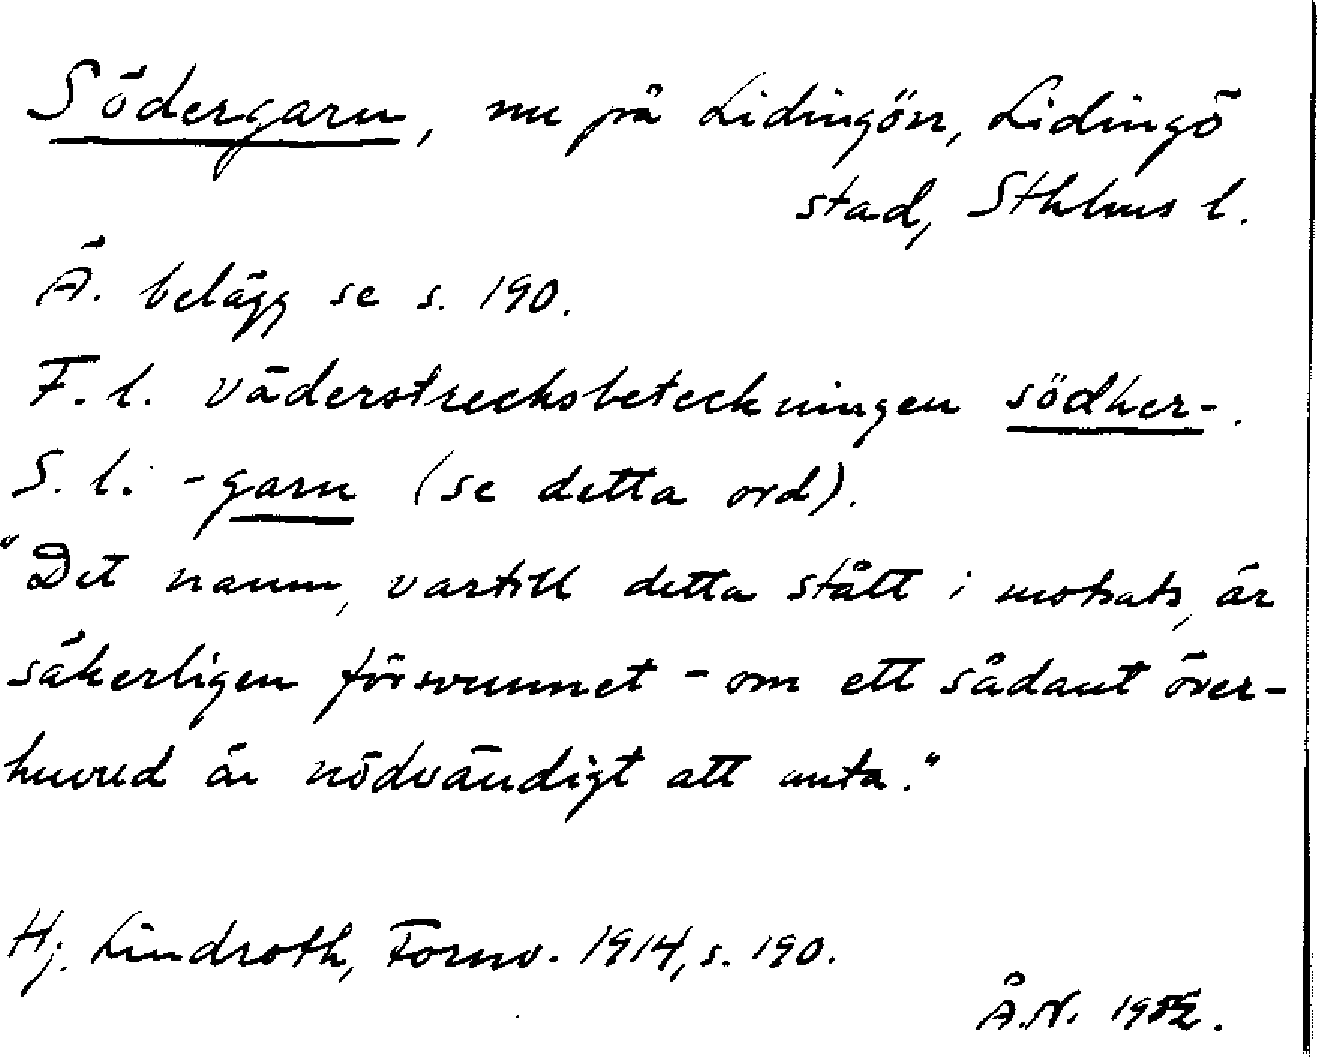 Södergarn, nu på Lidingön, Lidingö
stad, Sthlms l.
Ä. belägg se s. 190.
F. l. väderstrecksbeteckningen södher-.
S. l. -garn (se detta ord).
"Det namn, vartill detta stått i motsats, är
säkerligen försvunnet - om ett sådant över-
huvud är nödvändigt att anta."
Hj. Lindroth, Fornv. 1914, s. 190.
Å.N. 1952.